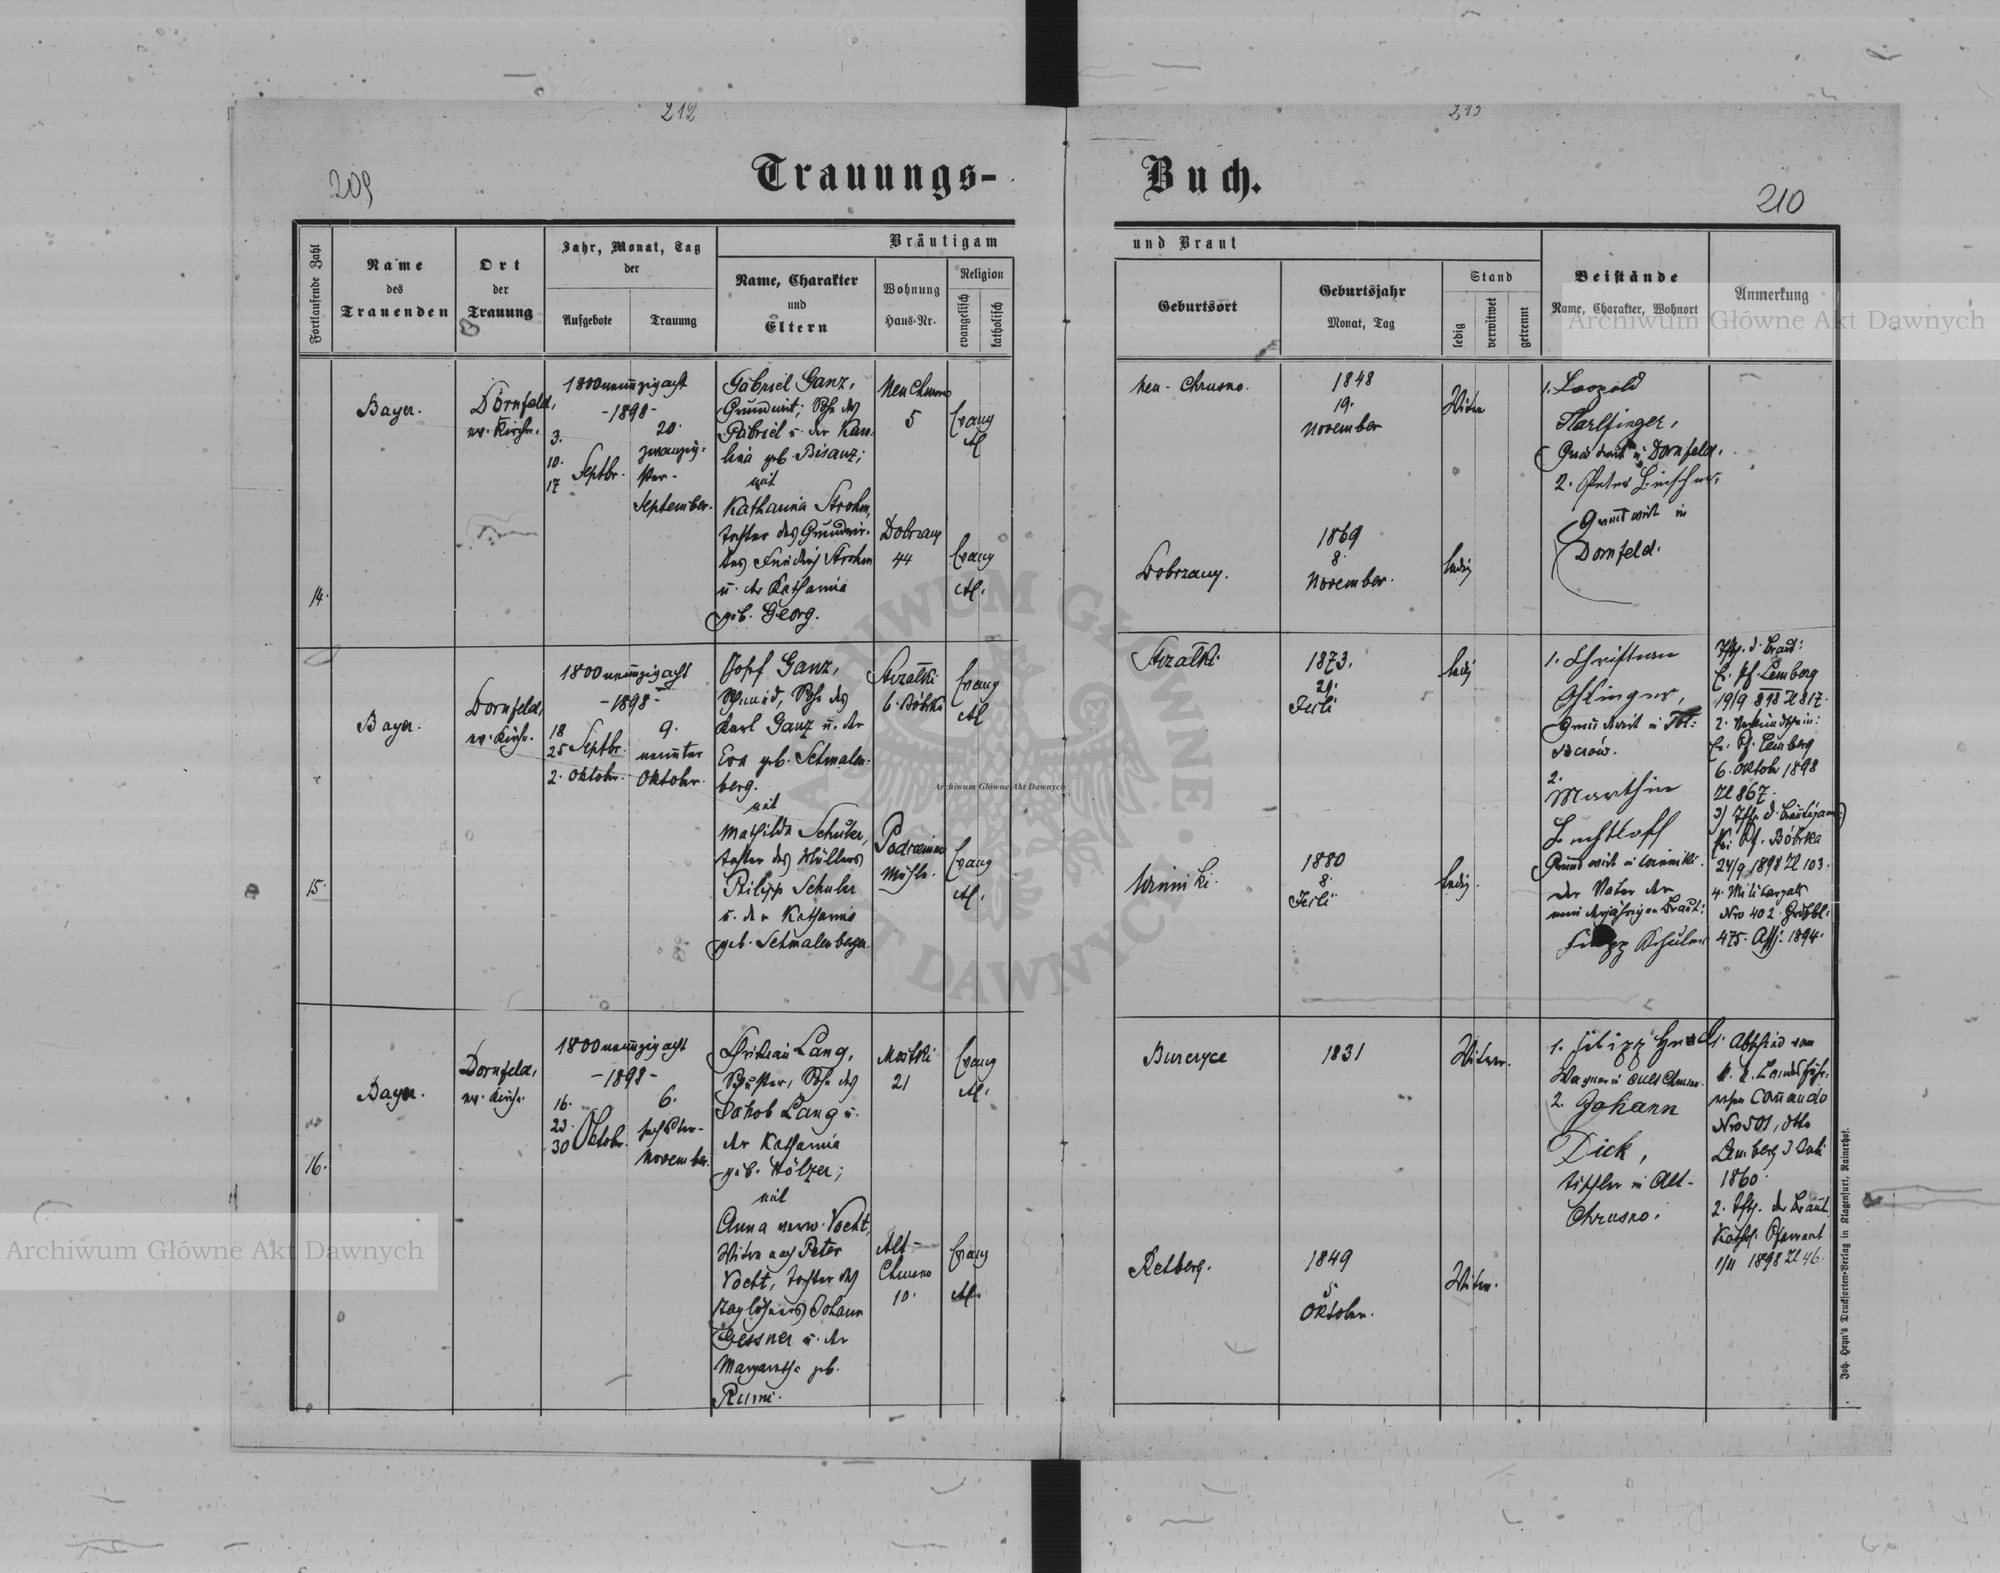 212
213
209
210
Trauungs-
Buch.
Fortlaufende Zahl
Name
des
Trauenden
Ort
der
Trauung
Jahr, Monat, Tag
der
Aufgebote
Trauung
Bräutigam
Name, Charakter
und
Eltern
Wohnung
Haus-Nr.
Religion
evangelisch
katholisch
und Braut
Geburtsort
Geburtsjahr
Monat, Tag
Stand
ledig
verwitwet
getrennt
Beistände
Name, Charakter, Wohnort
Anmerkung
Archiwum Główne Akt Dawnych
14.
Bayer.
Dornfeld,
ev. Kirche.
1800neunzigacht
-1898-
3.
10.
17
Septbr.
20.
zwanzig-
ster-
September.
Gabriel Ganz,
Grundwirt; Sohn des
Gabriel u. der Karo-
lina geb. Bisanz;
mit
Katharina Strohm,
Tochter des Grundwir-
tes Friedrich Strohm
u. der Katharina
geb. Georg.
Neu Chrusno
5
Evang
AC
Dobrzany
44
Evang
AC.
Neu-Chrusno.
1848
19.
November
Witwer
Dobrzany.
1869
8.
November.
ledig
1. Leopold
Harlfinger,
Grundwirt in Dornfeld.
2. Peter
Grundwirt in
Dornfeld.
15.
Bayer.
Dornfeld,
ev. Kirche.
1800neunzigacht
-1898-
18
25 Septbr.
2. Oktober.
9.
neunter
Oktober.
Josef Ganz,
Schmied, Sohn des
Karl Ganz u. der
Eva geb. Schmalen-
berg.
mit
Mathilde Schuler,
Tochter des Müllers
Philipp Schuler
u. der Katharina
geb. Schmalenberger.
Strzałki
b. Bóbrka
Evang
AC
Mühle.
Evang
AC.
Strzałki.
1873.
21.
Juli
ledig
Winniki.
1880
8.
Juli
ledig.
1. Christian
Ohlinger,
Grundwirt in
2.
Marthin
Bechtloff
Grundwirt in Winniki.
Der Vater der
minderjährigen Braut:
Schuler
d. Braut:
Ev. Pf. Lemberg
19/9 898 Zl 817.
2. Verkündschein:
Ev. Pf. Lemberg
6. Oktober 1898
Zl 867.
3) d. Bräutigams
Pf. Bóbrka
24/9 1898 Zl 103.
4. Militärpass
Nro 402
475. Assj. 1894.
Archiwum Główne Akt Dawnych
ARCHIWUM GŁÓWNE AKT DAWNYCH
16.
Bayer.
Dornfeld,
ev. Kirche.
1800neunzigacht
-1898-
16.
23.
30 Oktobr.
6.
sechster-
November.
Christian Lang,
Schuster, Sohn des
Jakob Lang u.
der Katharina
geb. Hölzer;
mit
Anna verw. Vocht,
Witwe nach Peter
Vocht, Tochter des
Taglöhners Johann
Gessner u. der
Margaretha geb.
Rumi.
Mostki
21
Evang
AC.
Alt-
Chrusno
10.
Evang
AC.
1831
Witwer.
Rehberg.
1849
5
Oktober.
Witwe.
1. Filipp
Wagner in Alt Chrusno.
2. Johann
Dick,
Tischler in Alt-
Chrusno.
1. Abschied vom
k. k.
Comando
Nro 501, dtto
Lemberg 3 Juli
1860.
2. der Braut
Kathol. Pfarramt
1/11 1898 Zl 46.
Archiwum Główne Akt Dawnych
Joh. Heyn's Drucksorten-Verlag in Klagenfurt, Rainerhof.